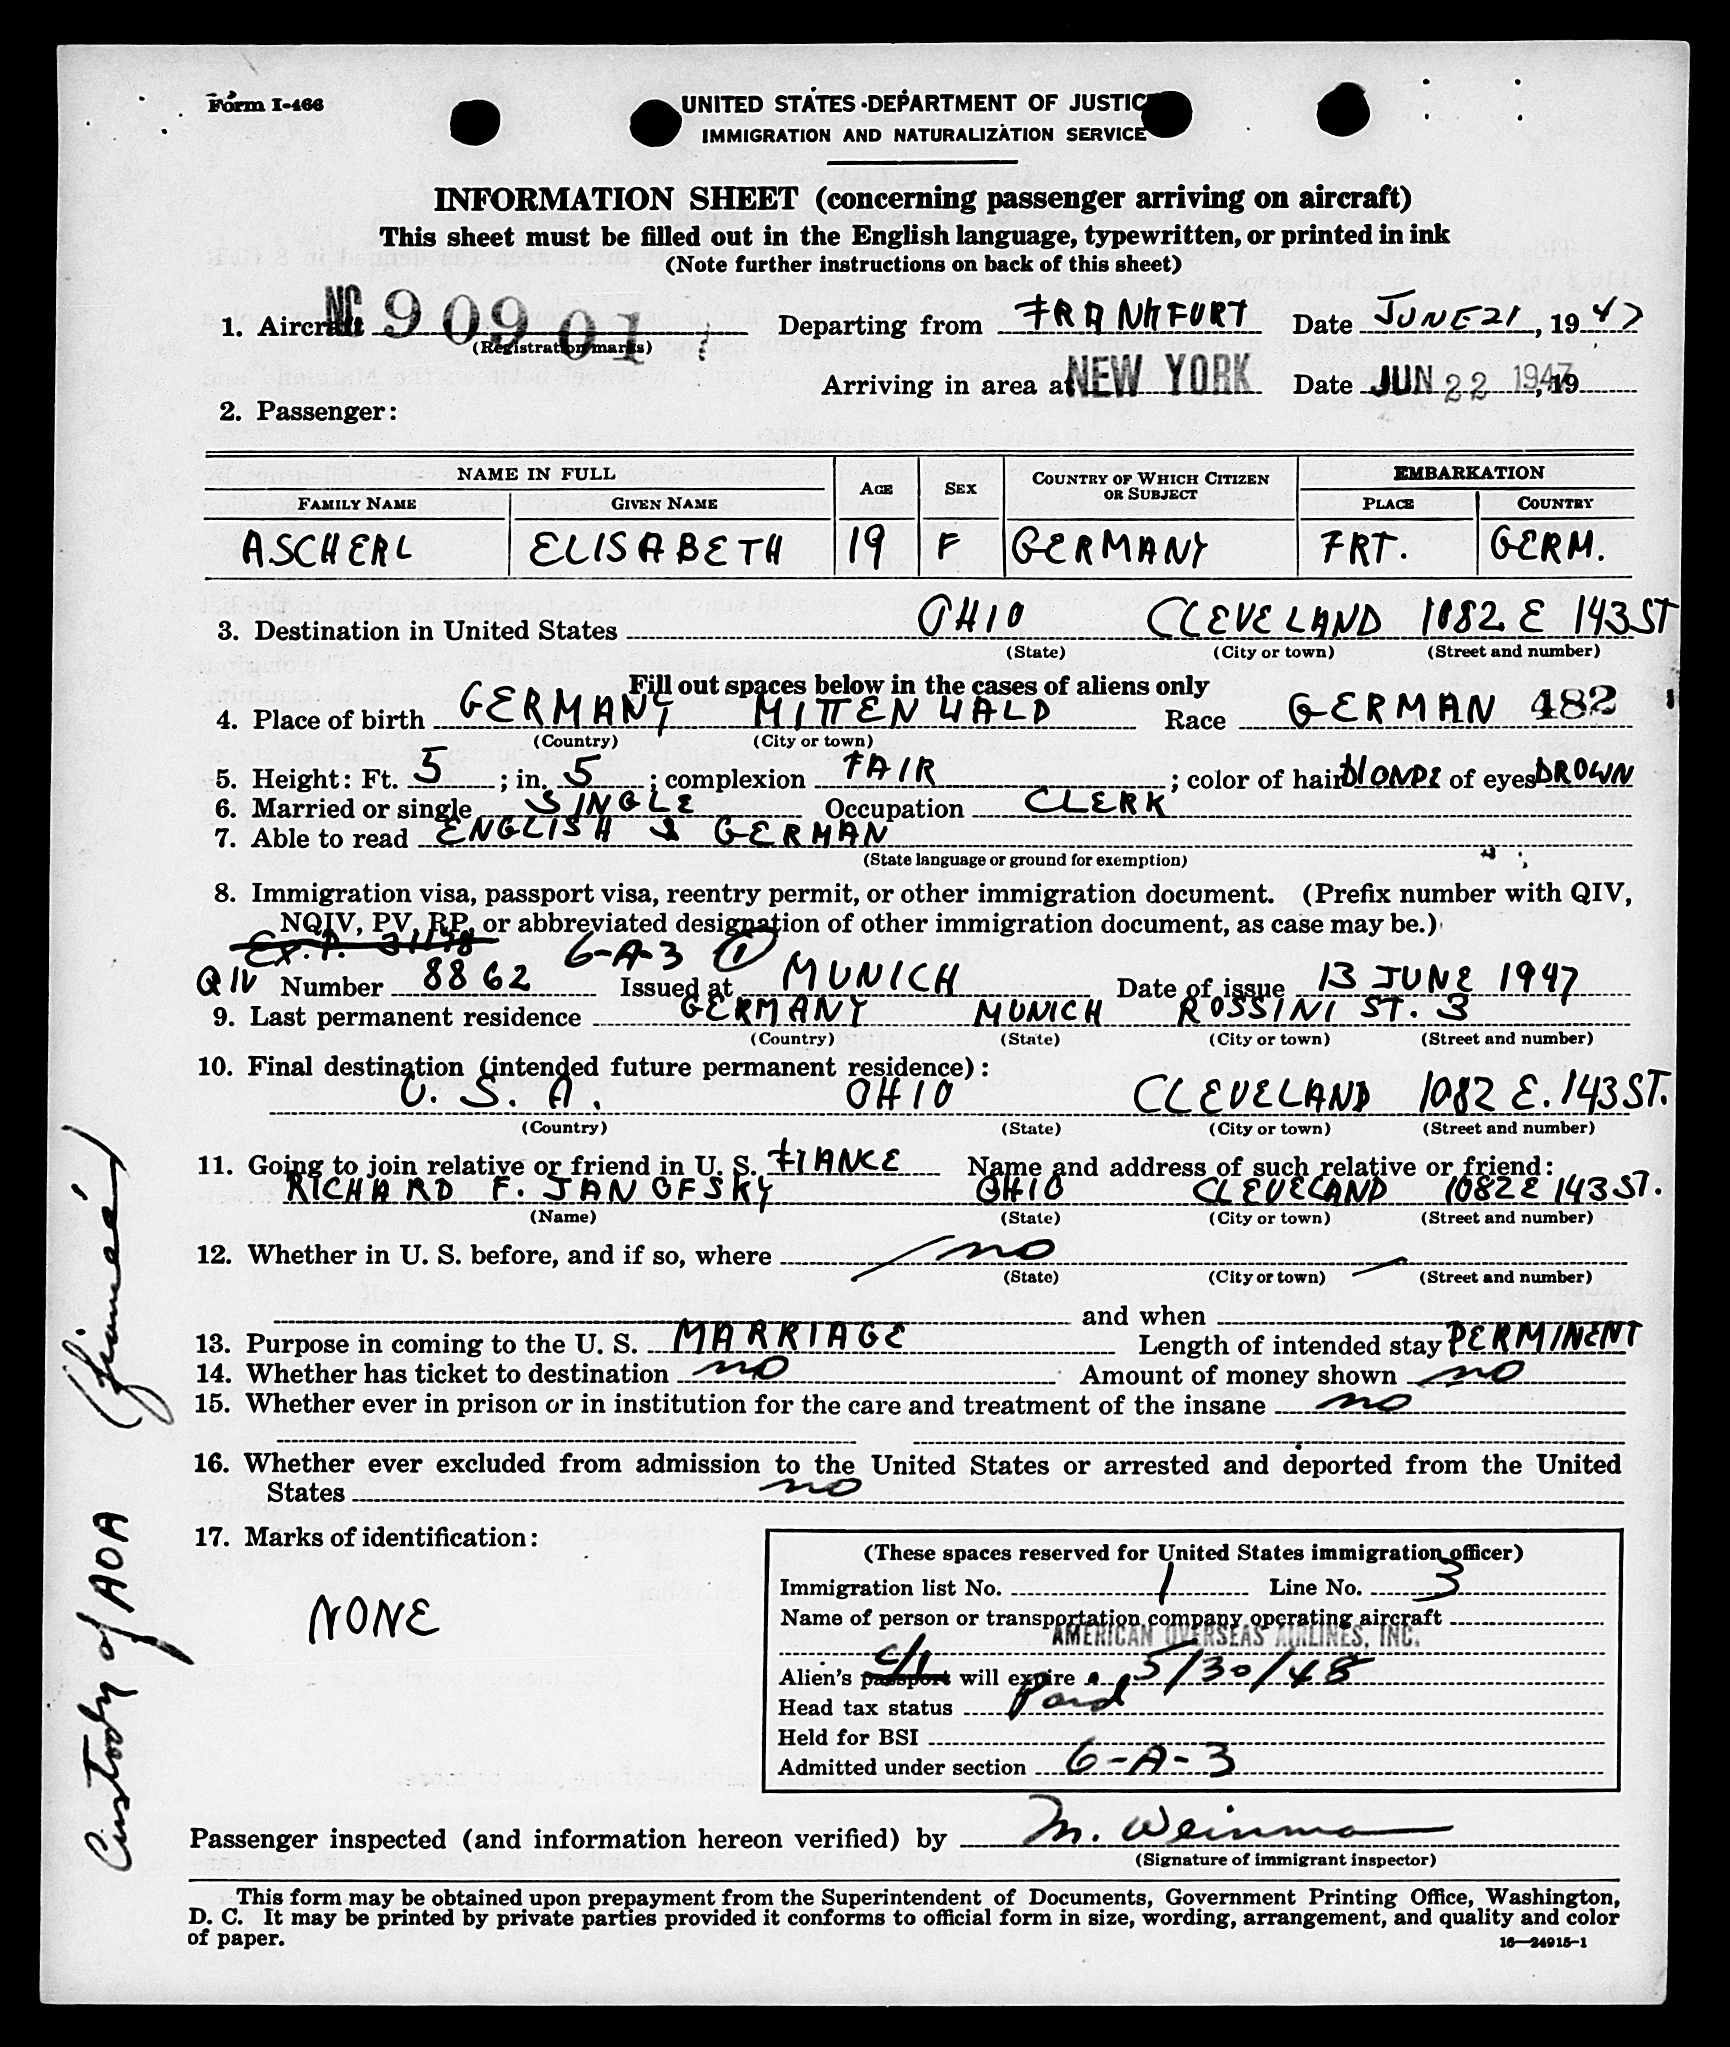 Form I-466
UNITED STATES DEPARTMENT OF JUSTIC
IMMIGRATION AND NATURALIZATION SERVICE
INFORMATION SHEET (concerning passenger arriving on aircraft)
This sheet must be filled out in the English language, typewritten, or printed in ink
(Note further instructions on back of this sheet)
1. Aircraft NC 90901 Departing from FRANKFURT Date JUNE 21, 1947
(Registration marks)
Arriving in area at NEW YORK Date JUN 22 1947, 19
2. Passenger:
NAME IN FULL AGE SEX COUNTRY OF WHICH CITIZEN OR SUBJECT EMBARKATION
FAMILY NAME GIVEN NAME PLACE COUNTRY
ASCHERL ELISABETH 19 F GERMANY FRT. GERM.
3. Destination in United States OHIO CLEVELAND 1082 E 143 ST
(State) (City or town) (Street and number)
Fill out spaces below in the cases of aliens only
4. Place of birth GERMANY MITTENWALD Race GERMAN 482
(Country) (City or town)
5. Height: Ft. 5; in. 5; complexion FAIR; color of hair BLONDE of eyes BROWN
6. Married or single SINGLE Occupation CLERK
7. Able to read ENGLISH & GERMAN
(State language or ground for exemption)
8. Immigration visa, passport visa, reentry permit, or other immigration document. (Prefix number with QIV,
NQIV, PV, RP, or abbreviated designation of other immigration document, as case may be.)
6-A-3 1
QIV Number 8862 Issued at MUNICH Date of issue 13 JUNE 1947
9. Last permanent residence GERMANY MUNICH ROSSINI ST. 3
(Country) (State) (City or town) (Street and number)
10. Final destination (intended future permanent residence):
U. S. A. OHIO CLEVELAND 1082 E. 143 ST.
(Country) (State) (City or town) (Street and number)
11. Going to join relative or friend in U. S. FIANCE Name and address of such relative or friend:
RICHARD F. JANOFSKY OHIO CLEVELAND 1082 E 143 ST.
(Name) (State) (City or town) (Street and number)
12. Whether in U. S. before, and if so, where no
(State) (City or town) (Street and number)
and when
13. Purpose in coming to the U. S. MARRIAGE Length of intended stay PERMINENT
14. Whether has ticket to destination no Amount of money shown no
15. Whether ever in prison or in institution for the care and treatment of the insane no
16. Whether ever excluded from admission to the United States or arrested and deported from the United
States no
17. Marks of identification:
NONE
(These spaces reserved for United States immigration officer)
Immigration list No. 1 Line No. 3
Name of person or transportation company operating aircraft
AMERICAN OVERSEAS AIRLINES, INC.
Alien's passport will expire 5/30/48
Head tax status Paid
Held for BSI
Admitted under section 6-A-3
Passenger inspected (and information hereon verified) by M. Weinman
(Signature of immigrant inspector)
This form may be obtained upon prepayment from the Superintendent of Documents, Government Printing Office, Washington,
D. C. It may be printed by private parties provided it conforms to official form in size, wording, arrangement, and quality and color
of paper.
16—24915-1
Custody of AOA (fianceé)